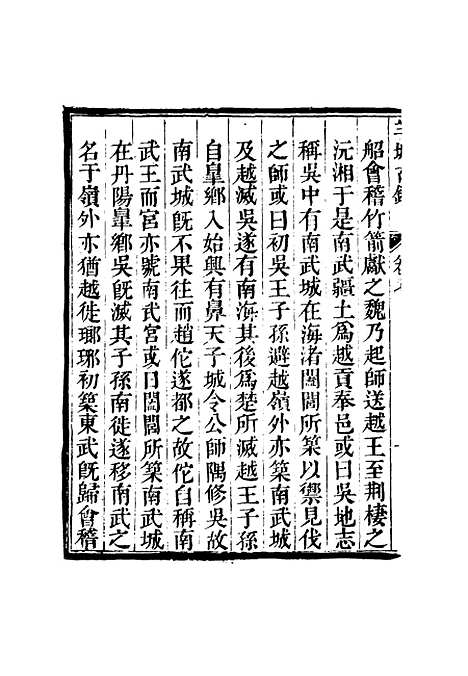 船會稽竹箭獻之魏乃起師送越王至荆棲之
沅湘于是南武疆土爲越貢奉邑或曰吳地志
稱吳中有南武城在海渚闔閭所築以禦見伐
之師或曰初吳王子孫避越嶺外亦築南武城
及越滅吳遂有南海其後爲楚所滅越王子孫
自皐鄉入始興有鼻天子城令公師隅修吳故
南武城旣不果往而趙佗遂都之故佗自稱南
武王而宮亦號南武宮或曰闔閭所築南武城
在丹陽皐鄉吳旣滅其子孫南徙遂移南武之
名于嶺外亦猶越徙瑯琊初築東武旣歸會稽